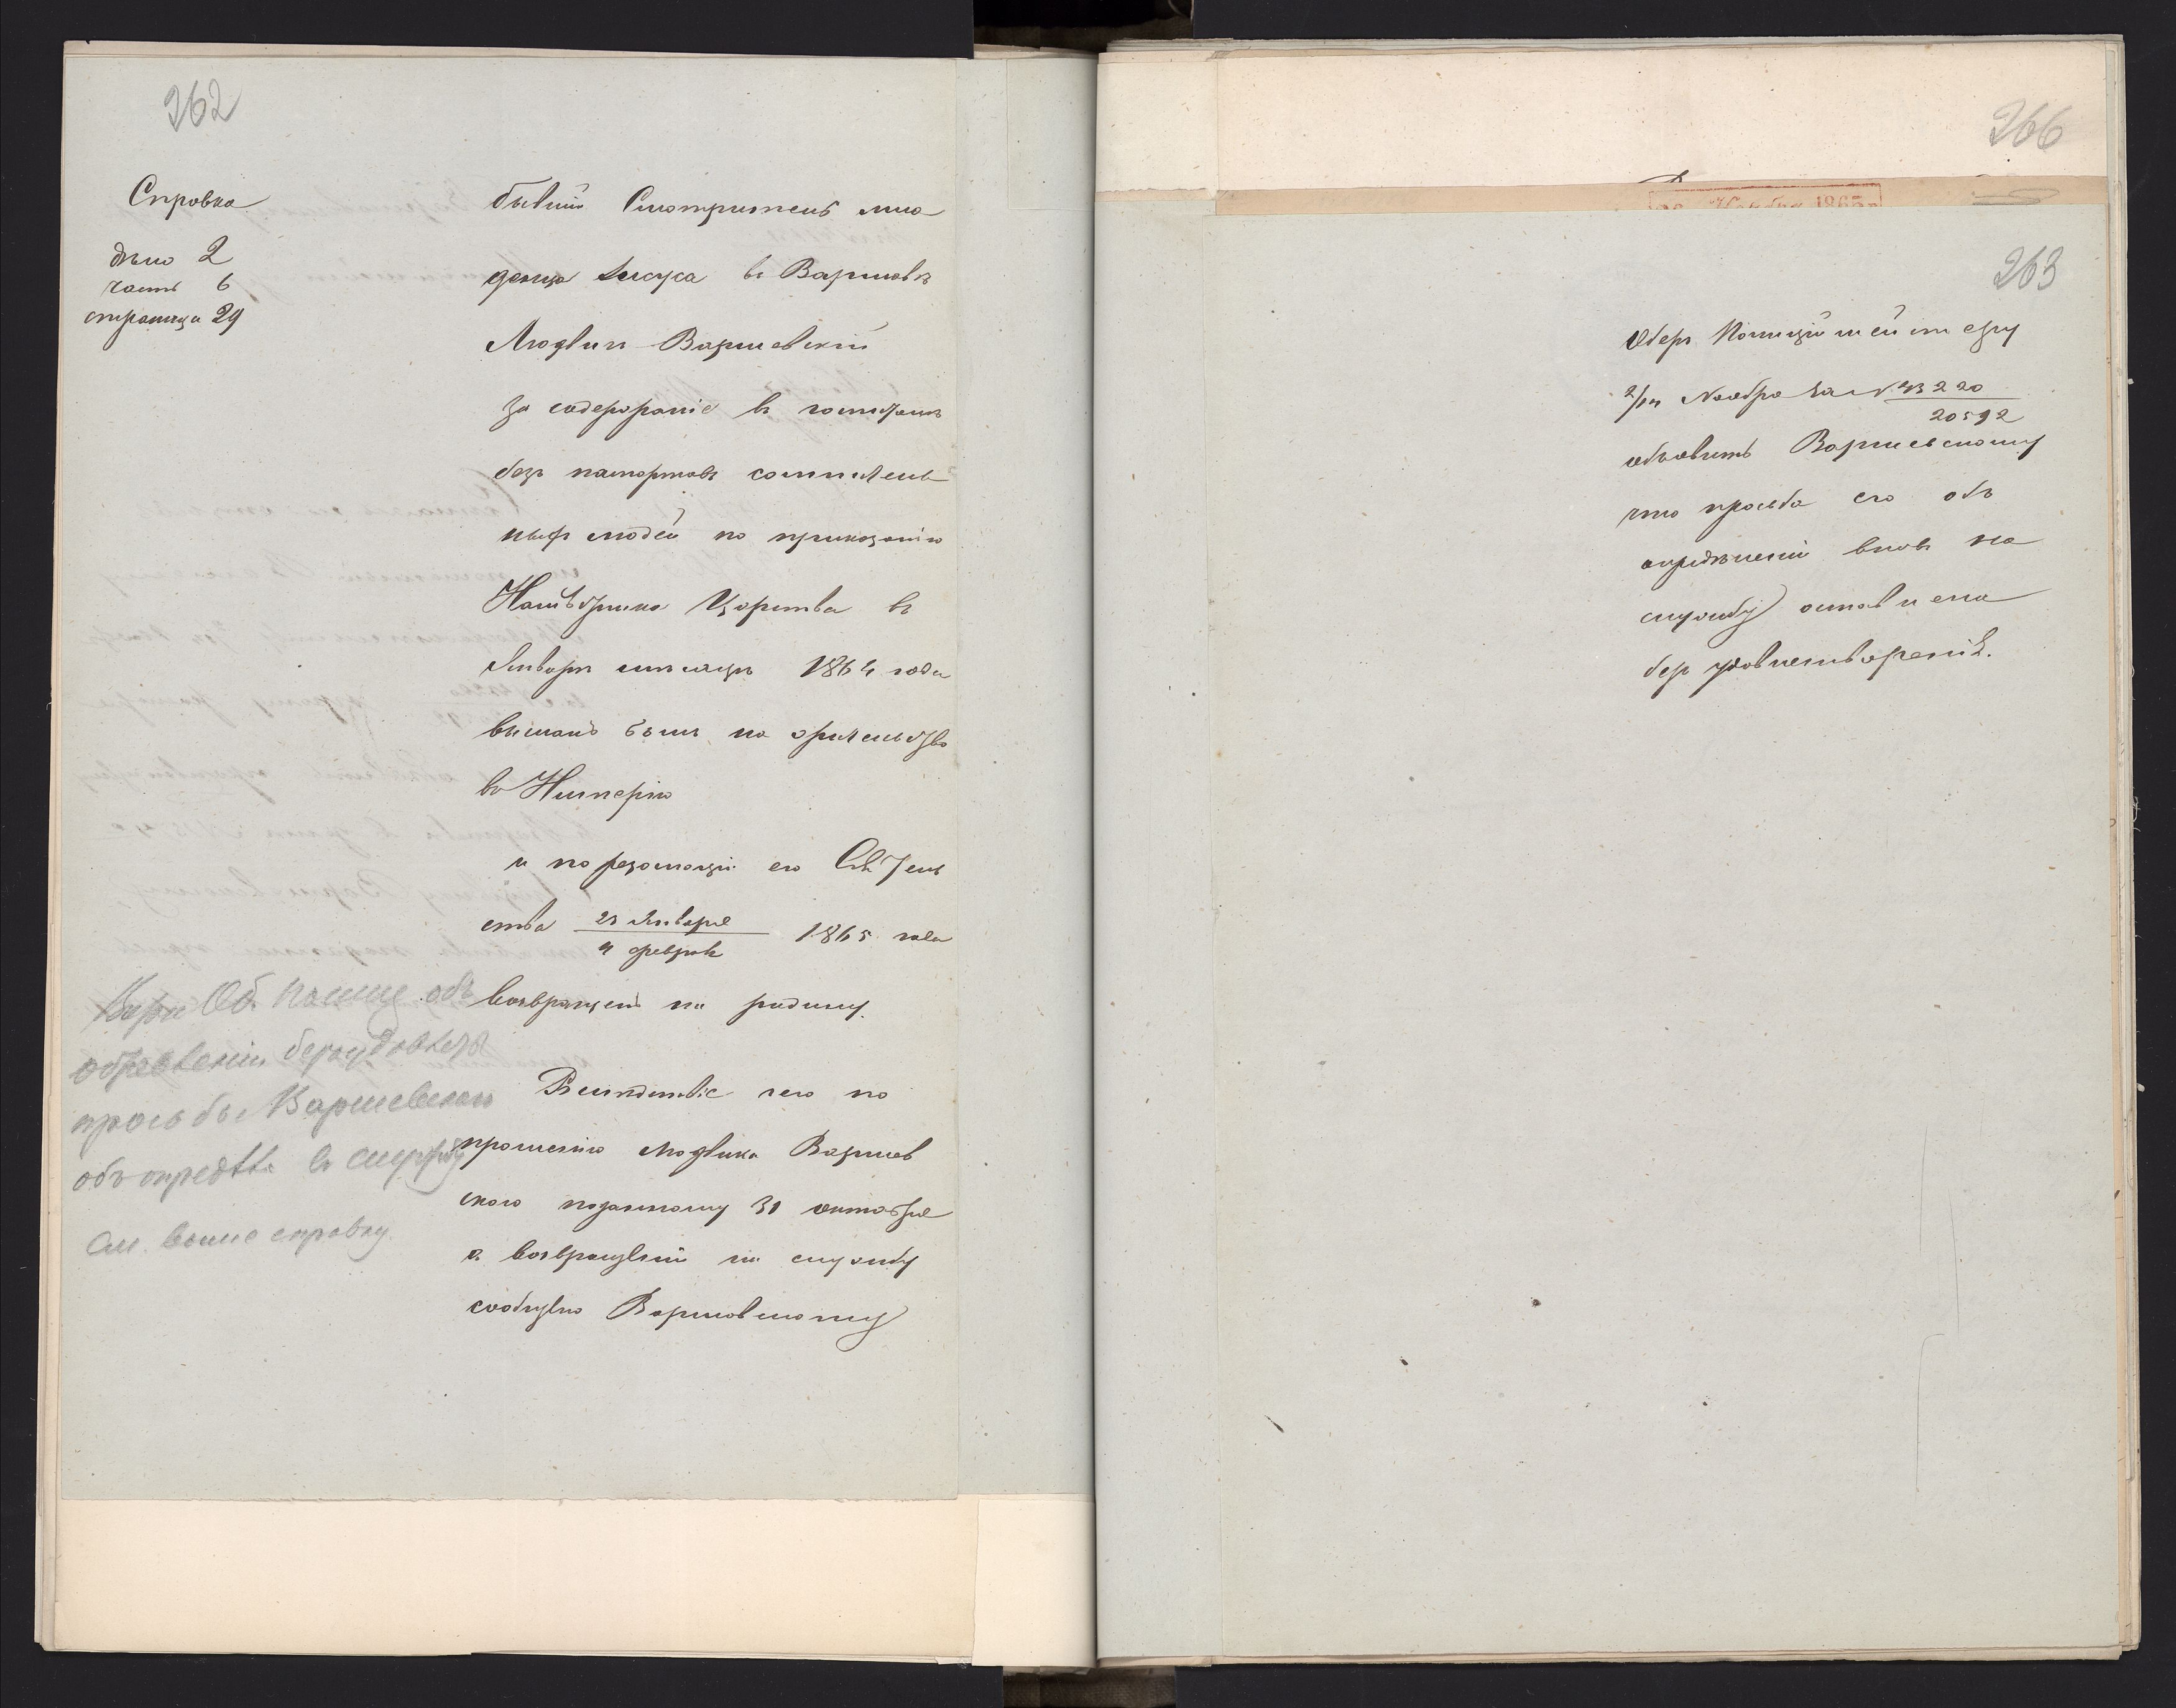 262
Справка
дѣло 2
часть 6
страница 29
бывшій Смотритель мла
денца Іисуса въ Варшавѣ
Людвигъ Варшевскій
за содержаніе въ
безъ паспортовъ сомнитель
ныхъ людей по приказанію
Намѣстника Царства въ
Январѣ мѣсяцѣ 1864 года
высланъ былъ на жительство
въ Имперію
и по резолюціи его Сіятель
ства 23 Января / 4 Февраля 1865 года
возвращенъ на родину.
Вслѣдствіе чего по
прошенію Людвика Варшев
скаго поданному 30 октября
о возвращеніи на службу
сообщено Варшавскому
Об. Полиц. объ
объявленіи безъ удовлетв
просьбы Варшевскаго
объ опредѣл. въ службу
см. выше справку
266
Ноября 1865
263
Оберъ Полиціймейстеру
2/14 Ноября за № 43220
20592
объявить Варшевскому
что просьба его объ
опредѣленіи вновь на
службу оставлена
безъ удовлетворенія.